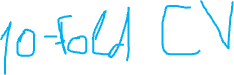 10-fold CV